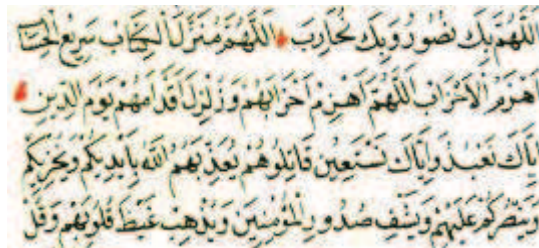 اَللّٰهُمَّ بِكَ نَصُورُ وَبِكَ نُحَارِبُ اَللّٰهُمَّ مُنَزِّلَ الْكِتَابِ سَرِيعَ الْحِسَابِ
اَهْزِمِ الْاَحْزَابَ اَللّٰهُمَّ اَهْزِمْ اَحْزَابَهُمْ وَزَلْزِلْ قَدَامَهُمْ يَوْمَ الدِّينِ
اِيَّاكَ نَعْبُدُ وَاِيَّاكَ نَسْتَعِينُ قَاتِلُوهُمْ يُعَذِّبْهُمُ اللّٰهُ بِاَيْدِيكُمْ وَيُخْزِيكُمْ
وَيَنْصُرْكُمْ عَلَيْهِمْ وَيَشْفِ صُدُورَ الْمُؤْمِنِينَ وَيُذْهِبْ غَيْظَ قُلُوبِهِمْ وَقُلْ